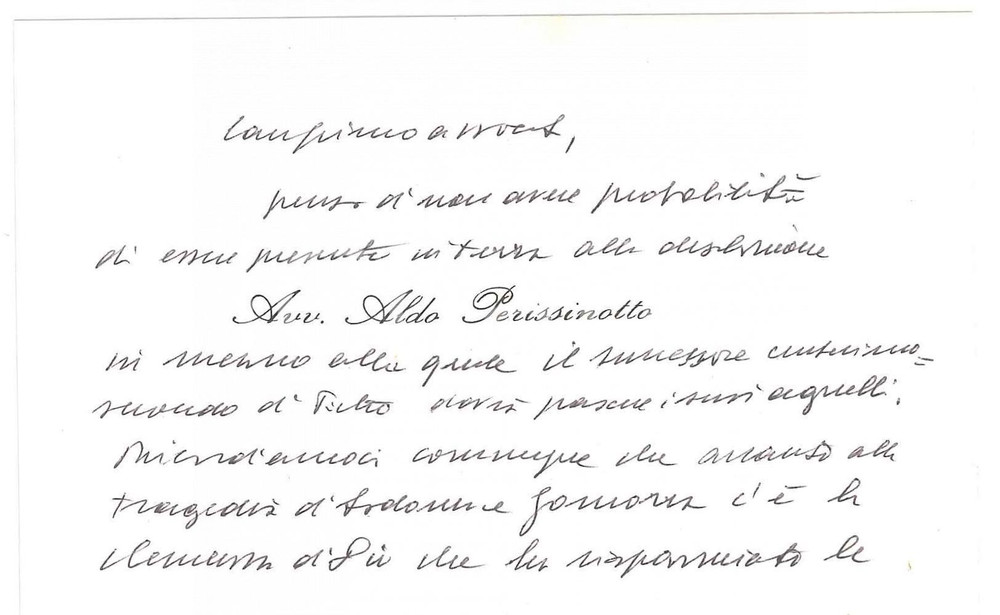 Carissimo avvocato,
penso di non avere probabilità
di essere presente in terra alla desolazione
Avv. Aldo Perissinotto
in mezzo alla quale il successore centesimo=
secondo di Pietro dovrà pascere i suoi agnelli.
Ricordiamoci comunque che accanto alla
tragedia di Sodoma e Gomorra c'è la
clemenza di Dio che ha risparmiato le